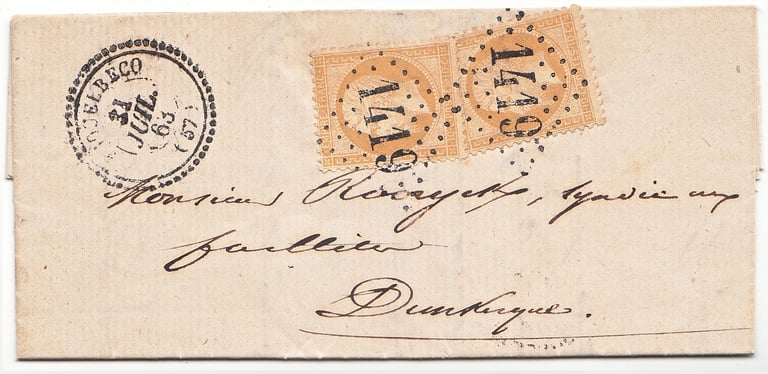 ESQUELBECQ
31
JUIL.
63
(57)
1419
1419
Monsieur Rooryck, syndic aux
faillites
Dunkerque.